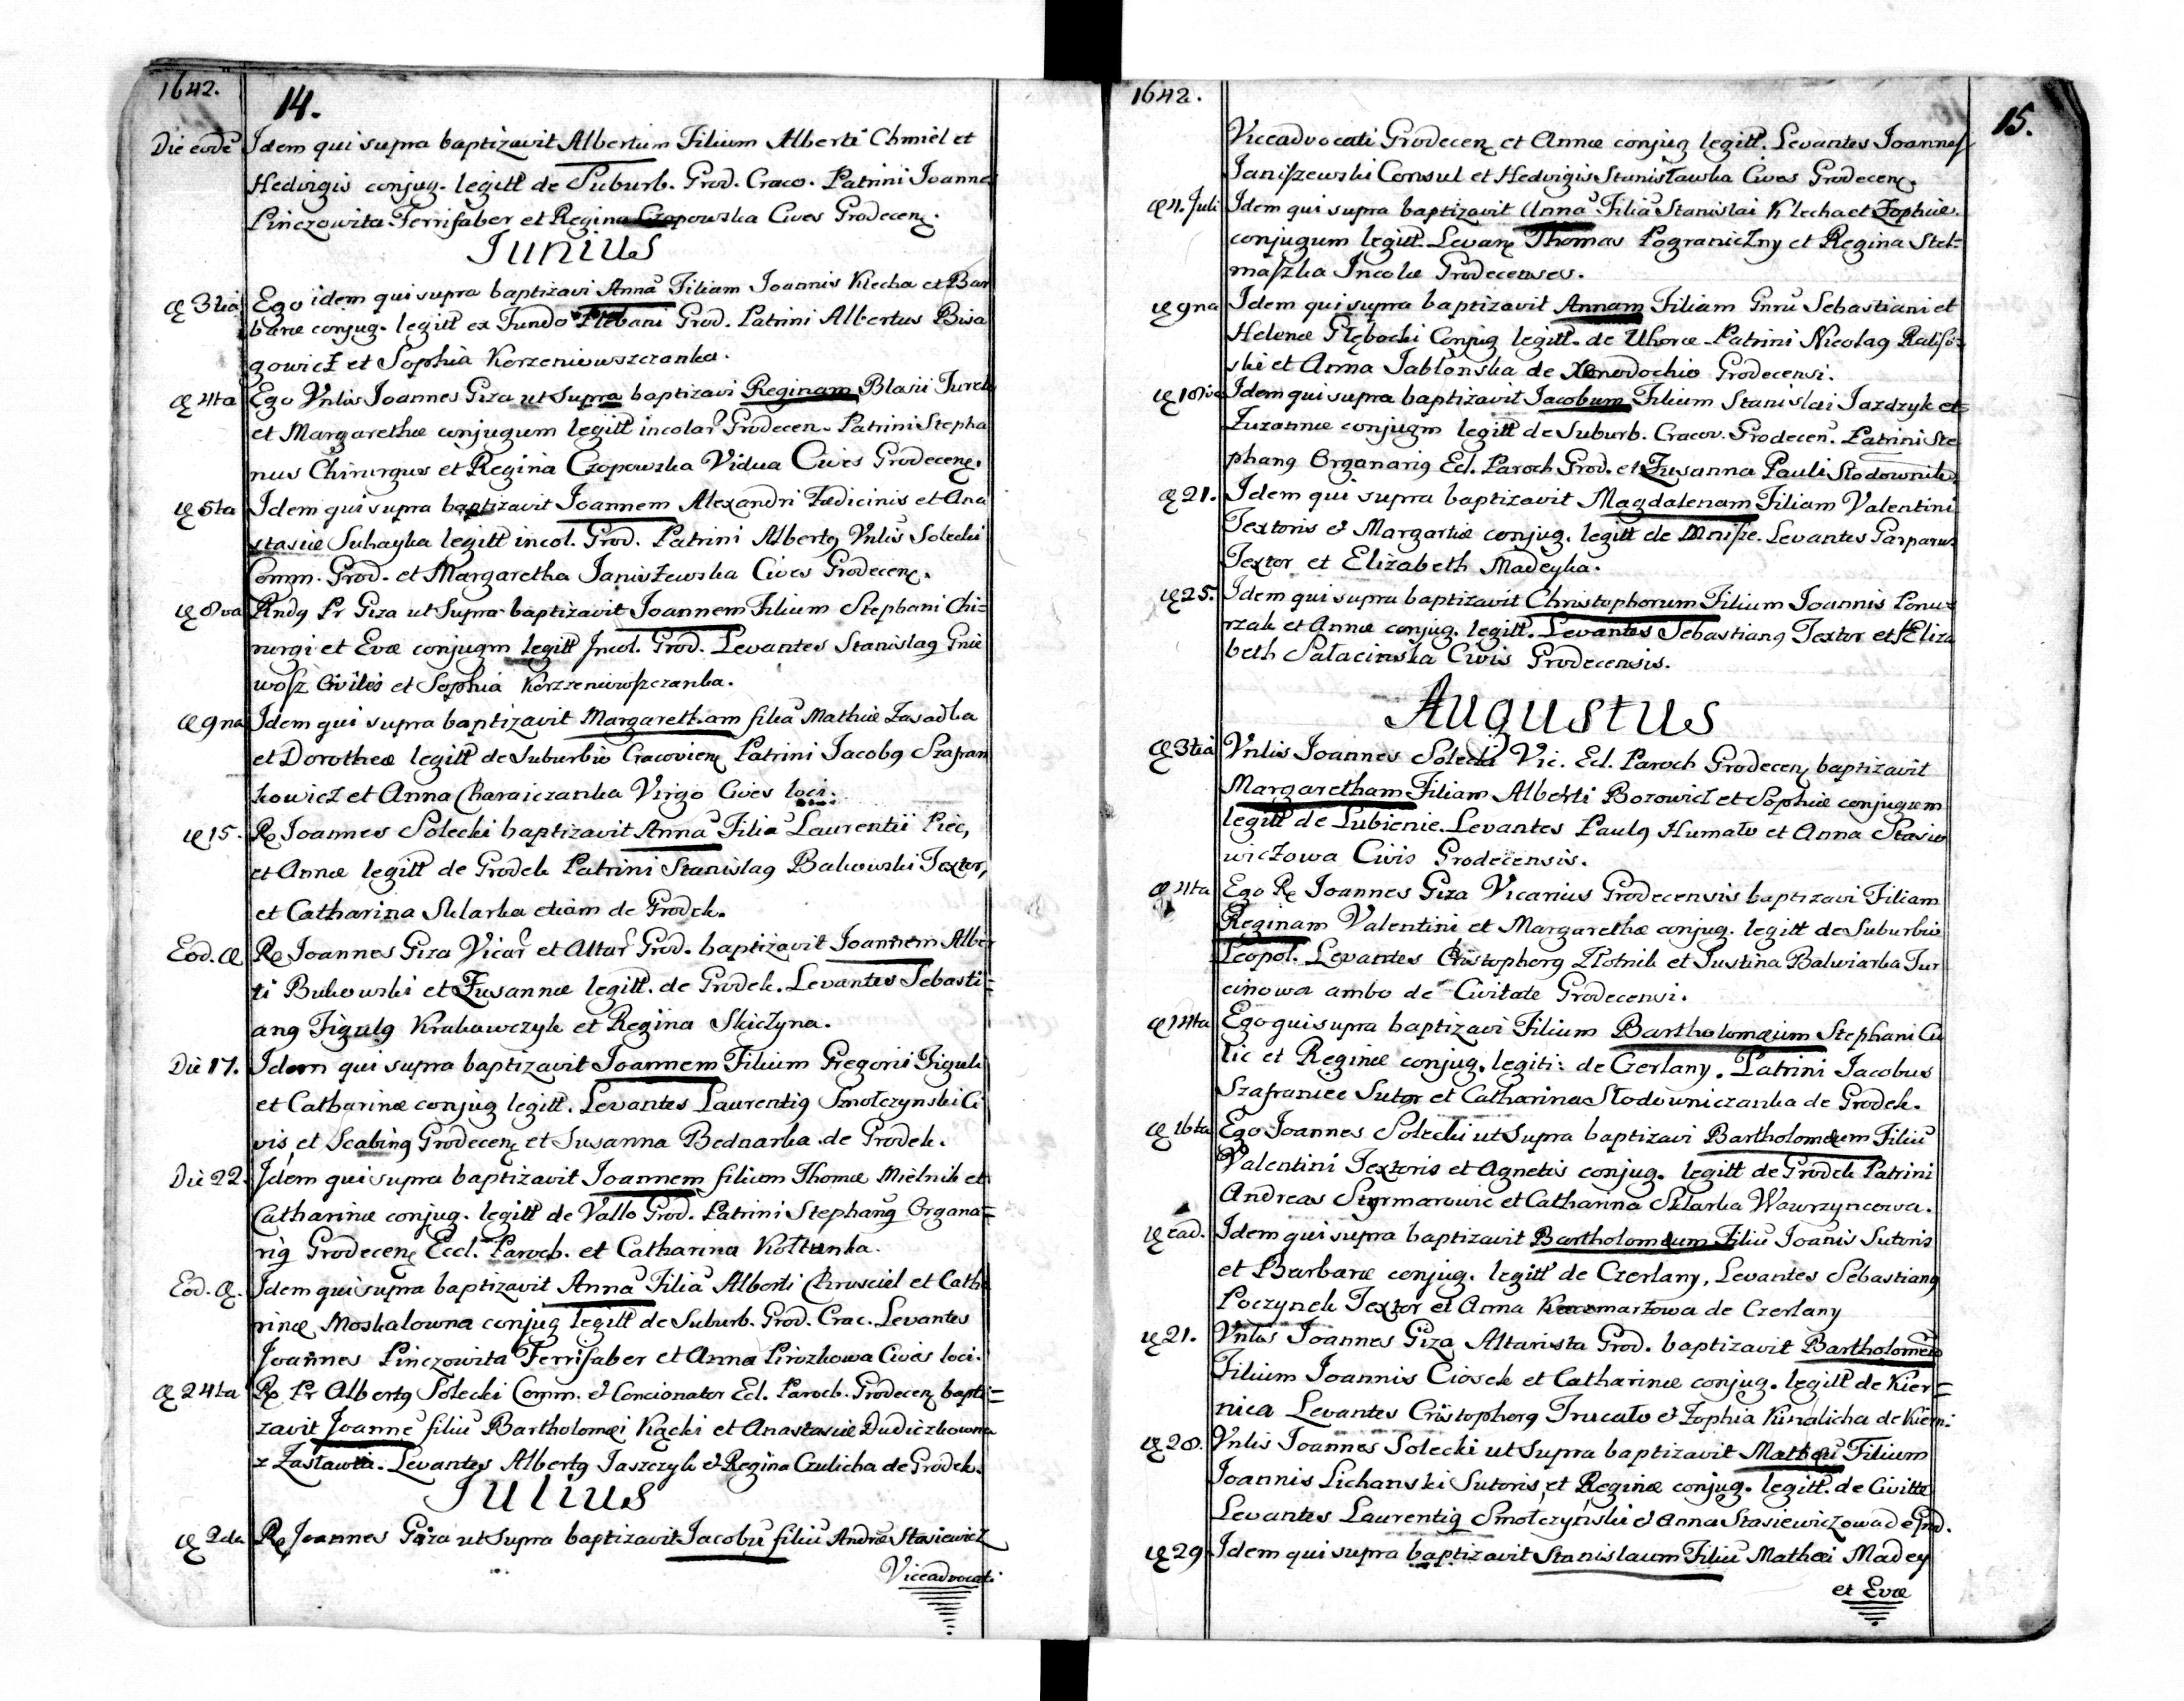 1642.
14.
Die eodē Idem qui supra baptizavit Albertum Filium Alberti Chmiel et
Hedvigis conjug. legitt de Suburb. Grod. Craco. Patrini Joannes
Pinczowita Ferrifaber et Regina Czopowska Cives Grodecen.
Junius
3tiâ Ego idem qui supra baptizavi Annā Filiam Joannis Klecha et Bar
baræ conjug. legitt ex Fundo Plebani Grod. Patrini Albertus Bisa
gowicz et Sophia Korzeniowszczanka.
4ta Ego Vnlis Joannes Giza ut Supra baptizavi Reginam Blasii Jurek
et Margarethæ conjugum legitt incolar Grodecen. Patrini Stepha
nus Chirurgus et Regina Czopowska Vidua Cives Grodecen.
5ta Idem qui supra baptizavit Joannem Alexandri Fœdicinis et Ana
stasiæ Suhayka legitt incol. Grod. Patrini Albertq Vnlis Solecki
Comm. Grod. et Margaretha Janiszewska Cives Grodecen.
8va Rndq Pr Giza ut Supra baptizavit Joannem Filium Stephani Chi=
rurgi et Evæ conjugm legitt Incol. Grod. Levantes Stanislaq Gnie
wosz Civilis et Sophia Korzeniowszczanka.
9na Idem qui supra baptizavit Margaretham filiā Mathiæ Zasadka
et Dorotheæ legitt de Suburbio Cracovien Patrini Jacobq Szafran
kowicz et Anna Charaiczanka Virgo Cives loci.
15. R Joannes Solecki baptizavit Annā Filiā Laurentii Piec,
et Annæ legitt de Grodek Patrini Stanislaq Bakowski Textor,
et Catharina Sklarka etiam de Grodek.
Eod. R Joannes Giza Vicar et Altar Grod. baptizavit Joannem Alber
ti Bukowski et Zusannæ legitt. de Grodek. Levantes Sebasti=
anq Figulq Krakawczyk et Regina Skiczyna.
Die 17. Idem qui supra baptizavit Joannem Filium Gregorii Figuli
et Catharinæ conjug legitt. Levantes Laurentiq Smolczynski Ci
vis, et Scabinq Grodecen et Susanna Bednarka de Grodek.
Die 22. Idem qui supra baptizavit Joannem filium Thomæ Mielnik et
Catharinæ conjug. legitt de Vallo Grod. Patrini Stephanq Organa=
riq Grodecen Eccl. Paroch. et Catharina Koltunka.
Eod. Idem qui supra baptizavit Annā Filiā Alberti Chrusciel et Catha
rinæ Moskalowna conjug legitt de Suburb. Grod. Crac. Levantes
Joannes Pinczowita Ferrifaber et Anna Pirozkowa Cives loci.
24ta R Pr Albertq Solecki Comm. et Concionator Ecl. Paroch. Grodecen bapti=
zavit Joannē filiū Bartholomæi Kącki et Anastasiæ Dudiczkowna
z Zastawia. Levantes Albertq Jaszczyk et Regina Czulicha de Grodek.
Julius
2da R Joannes Giza ut Supra baptizavit Jacobū filiū Andreæ Stasiewicz
Viceadvocati
1642.
15.
Viceadvocati Grodecen et Annæ conjug legitt. Levantes Joannes
Janiszewski Consul et Hedvigis Stanisławska Cives Grodecen.
4. Juli Idem qui supra baptizavit Annā Filiā Stanislai Klecha et Zophiæ
conjugum legitt. Levan Thomas Pograniczny et Regina Stel=
maszka Incolæ Grodecenses.
9na Idem qui supra baptizavit Annam Filiam Gnrū Sebastiani et
Helenæ Głębocki Conjug legitt. de Uhorce Patrini Nicolaq
ski et Anna Jabłonska de Xenodochio Grodecensi.
18va Idem qui supra baptizavit Jacobum Filium Stanislai Jazdzyk et=
Zuzannæ conjugm legitt de Suburb. Cracov. Grodecen. Patrini Ste
phanq Organariq Ecl. Paroch Grod. et Zusanna Pauli Slodownik
21. Idem qui supra baptizavit Magdalenam Filiam Valentini
Textoris et Margartæ conjug. legitt de Mnisze. Levantes Gasparus
Textor et Elizabeth Madeyka.
25. Idem qui supra baptizavit Christophorum Filium Joannis Ponu=
rzak et Annæ conjug. legitt. Levantes Sebastianq Textor et Eliza
beth Sałacinska Civis Grodecensis.
Augustus
3tiâ Vnlis Joannes Solecki Vic. Ecl. Paroch Grodecen baptizavit
Margaretham Filiam Alberti Borowicz et Sophiæ conjugum
legitt de Lubienie. Levantes Paulq Humało et Anna Stasie
wiczowa Civis Grodecensis.
4ta Ego R Joannes Giza Vicarius Grodecensis baptizavi Filiam
Reginam Valentini et Margarethæ conjug. legitt de Suburbio
Leopol. Levantes Christophorq Złotnik et Justina Balwiarka Jur
cinowa ambo de Civitate Grodecensi.
14ta Ego qui supra baptizavi Filium Bartholomæum Stephani Cu
lic et Reginæ conjug. legiti: de Czerlany. Patrini Jacobus
Szafraniec Sutor et Catharina Słodowniczanka de Grodek.
16ta Ego Joannes Solecki ut Supra baptizavi Bartholomæum Filiū
Valentini Textoris et Agnetis conjug. legitt de Grodek Patrini
Andreas Szyrmarowic et Catharina Sklarka Wawrzyncowa.
ead. Idem qui supra baptizavit Bartholomæum Filiū Joanis Sutoris
et Barbaræ conjug. legitt de Czerlany, Levantes Sebastianq
Poczynek Textor et Anna Kaczmarzowa de Czerlany
21. Vnlis Joannes Giza Altarista Grod. baptizavit Bartholomeū
Filium Joannis Ciosek et Catharinæ conjug. legitt de Kier=
nica Levantes Cristophorq Trucało et Zophia Kuralicha de Kierni:
28. Vnlis Joannes Solecki ut Supra baptizavit Mathæū Filium
Joannis Lichanski Sutoris, et Reginæ conjug. legitt. de Civitte
Levantes Laurentiq Smolczyński et Anna Stasiewiczowa de Grod.
29. Idem qui supra baptizavit Stanislaum Filiū Mathæi Madey
et Evæ